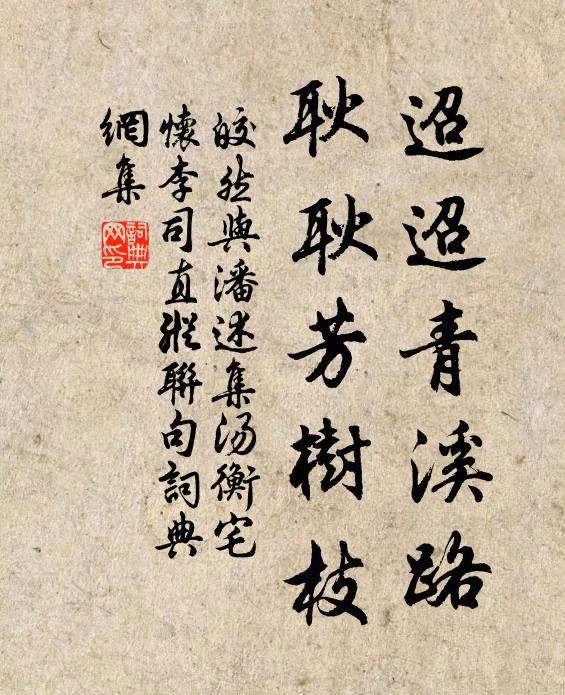 迢迢青溪路
耿耿芳樹枝
皎然與潘述集湯衡宅
懷李司直縱聯句詞典
網集
詞典
网印